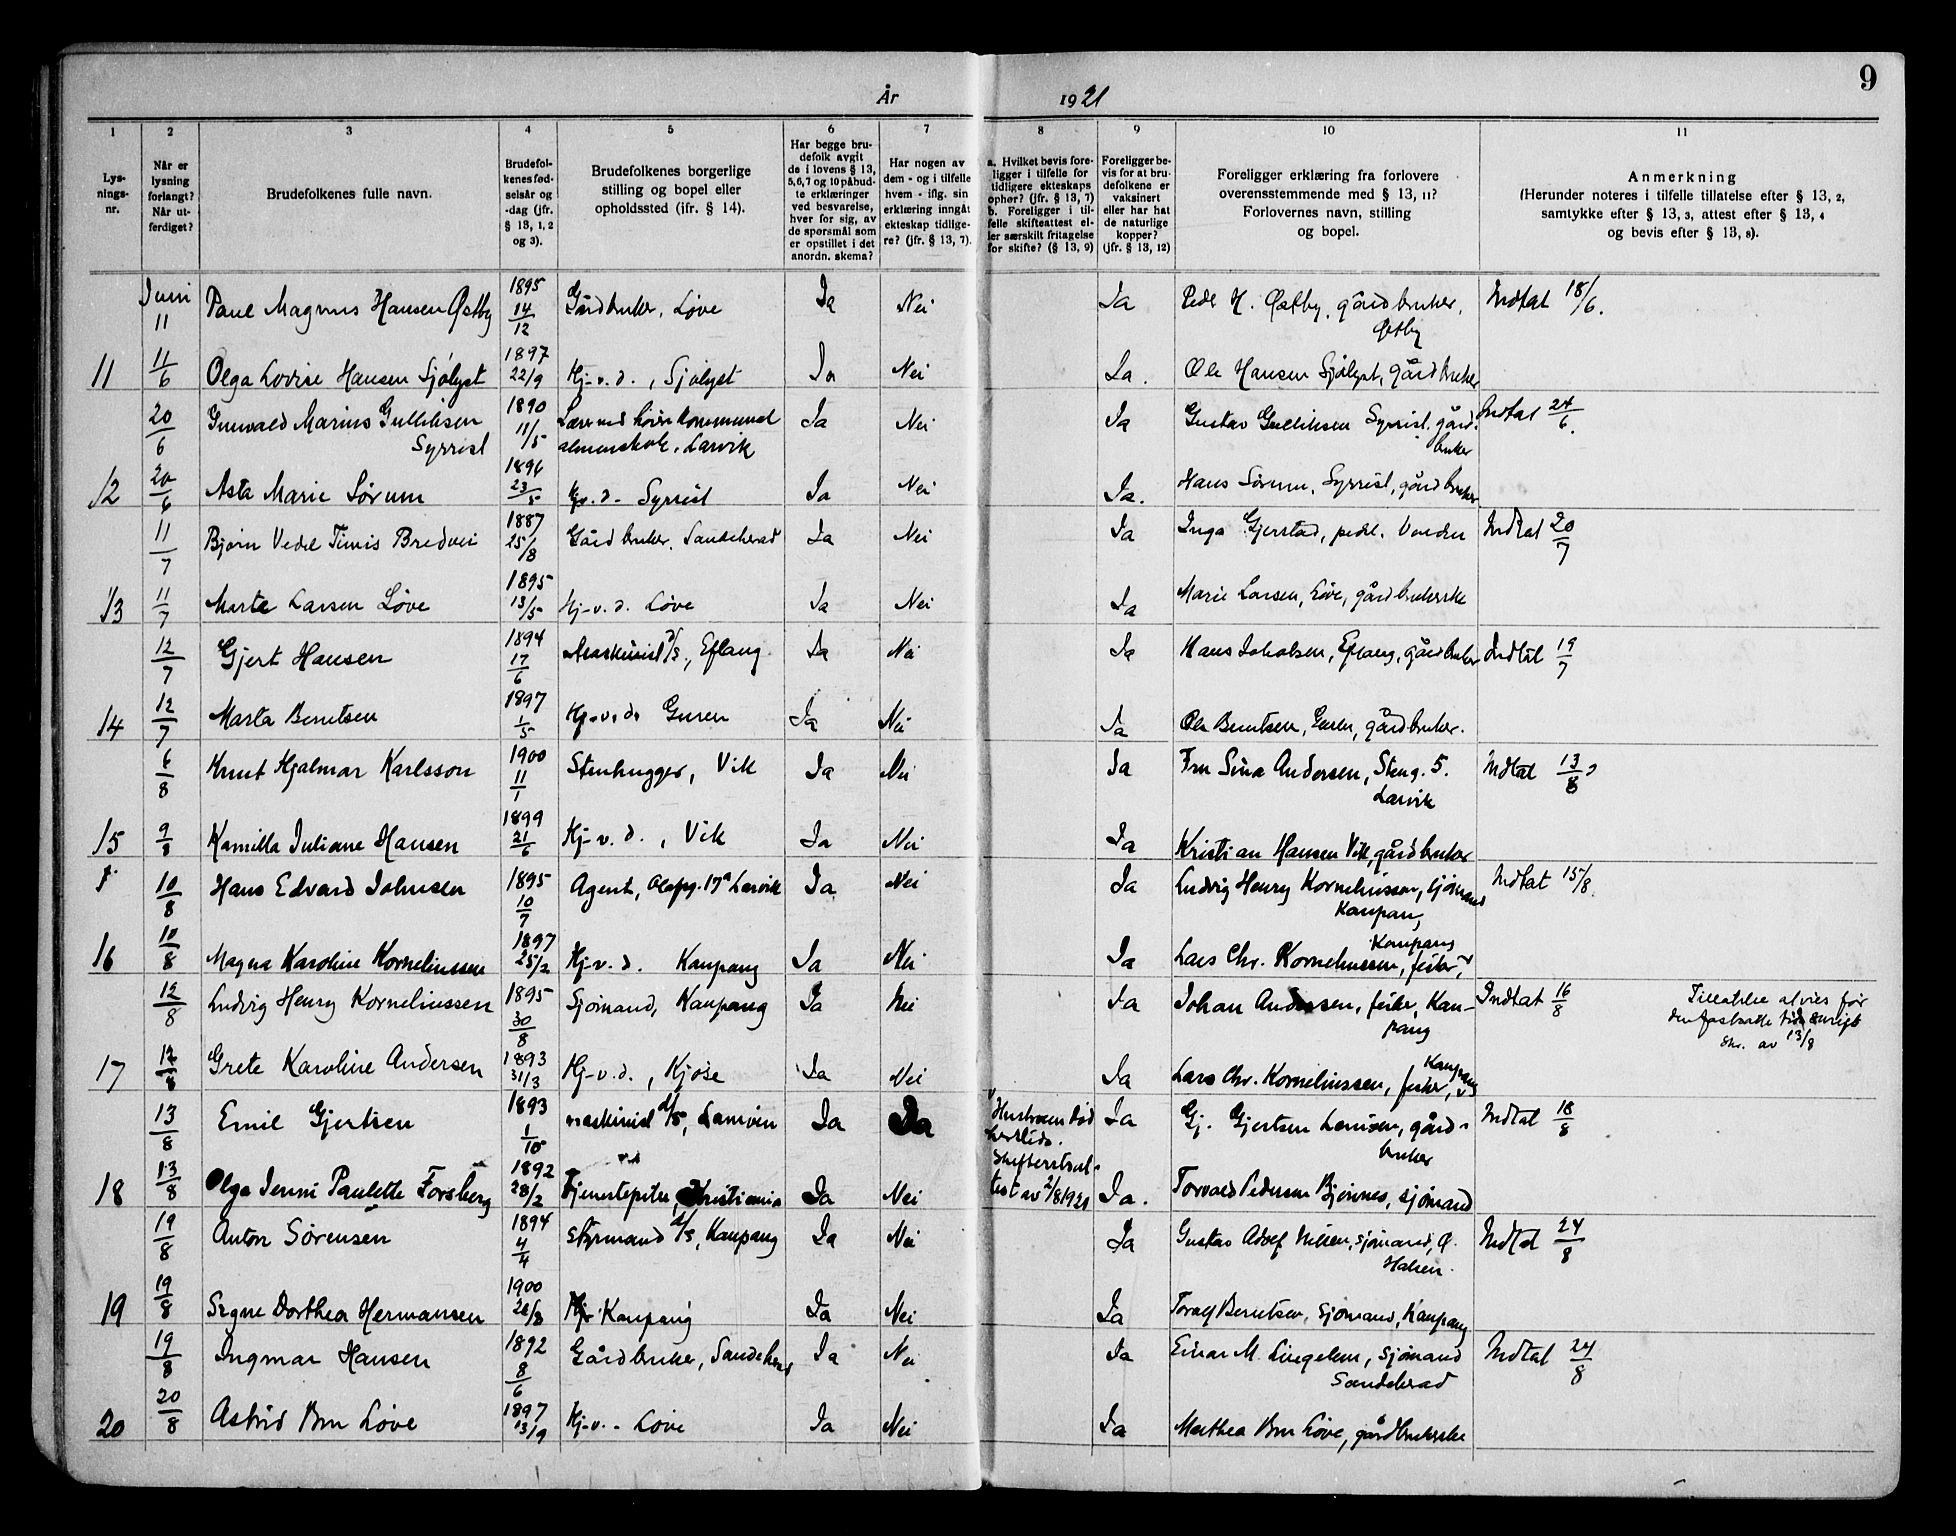 9
År 1921
1 2 3 4 5 6 7 8 9 10 11
Lys-
nings-
nr.
Når er
lysning
forlangt?
Når ut-
ferdiget?
Brudefolkenes fulle navn.
Brudefol-
kenes fød-
selsår og
-dag (jfr.
§ 13, 1, 2
og 3).
Brudefolkenes borgerlige
stilling og bopel eller
opholdssted (ifr. § 14).
Har begge bru-
defolk avgit
de i lovens § 13,
5,6,7 og 10 påbud-
te erklæringer
ved besvarelse,
hver for sig, av
de spørsmål som
er opstillet i det
anordn. skema?
Har nogen av
dem - og i tilfelle
hvem - iflg. sin
erklæring inngått
ekteskap tidlige-
re? (jfr. § 13, 7).
a. Hvilket bevis fore-
ligger i tilfelle for
tidligere ekteskaps
ophør? (jfr. § 13, 7)
b. Foreligger i til-
felle skifteattest el-
ler særskilt fritagelse
for skifte? (§ 13, 9)
Foreligger be-
vis for at bru-
defolkene er
vaksinert
eller har hat
de naturlige
kopper?
(jfr. § 13, 12)
Foreligger erklæring fra forlovere
overensstemmende med § 13, 11?
Forlovernes navn, stilling
og bopel.
Anmerkning
(Herunder noteres i tilfelle tillatelse efter § 13, 2,
samtykke efter § 13, 3, attest efter § 13, 4
og bevis efter § 13, 8).
Juni 11 Paul Magnus Hansen Østby 1895 14/12 Gårdbruker, Løve Ja Nei Ja Peder H. Østby, gårdbruker, Østby Indtat 18/6.
11 11/6 Olga Lovise Hansen Sjølyst 1897 22/9 Hj-v.d., Sjølyst Ja Nei Ja. Ole Hansen Sjølyst, gårdbruker
20/6 Gunvald Marius Gulliksen Syrrist 1890 11/5 Lærer ved kommunal almenskole, Larvik Ja Nei Ja Gustav Gulliksen Syrrist, gård-bruker Indtat 24/6.
12 20/6 Asta Marie Sørum 1896 23/5 Hj-v.d- Syrrist Ja Nei Ja. Hans Sørum, Syrrist, gårdbruker
11/7 Bjørn Vedel Bredvei 1887 25/8 Gårdbruker, Sandeherad Ja Nei Ja Inga Gjerstad, Indtat 20/7
13 11/7 Marta Larsen Løve 1895 13/5 Hj-v.d. Løve Ja Nei Ja Marie Larsen, Løve, gårdbrukerske
12/7 Gjert Hansen 1894 17/6 Maskinist d/s, Eftang Ja Nei Ja Hans Jakobsen, Eftang, gårdbruker Indtat 19/7
14 12/7 Marta Berntsen 1897 1/5 Hj-v.d. Guren Ja Nei Ja Ole Berntsen, Guren, gårdbruker.
6/8 Knut Hjalmar Karlsson 1900 11/1 Stenhugger, Vik Ja Nei Ja Fru Sina Andersen, Steng. 5. Larvik Indtat 13/8
15 9/8 Kamilla Juliane Hansen 1899 21/6 Hj-v.d., Vik Ja Nei Ja Kristian Hansen Vik, gårdbruker
10/8 Hans Edvard Johnsen 1895 10/7 Agent, 17a Larvik Ja Nei Ja Ludvig Henry Korneliussen, sjømand Kaupang, Indtat 15/8.
16 10/8 Magna Karoline Korneliussen 1897 25/2 Hj-v.d. Kaupang Ja Nei Ja Lars Chr. Korneliussen, fisker, Kaupang
12/8 Ludvig Henry Korneliussen 1895 30/8 Sjømand, Kaupang Ja Nei Ja Johan Andersen, fisker, Kau-pang Indtat 16/8
Tillatelse før
den fastsatte tid
Skr. av 13/8
17 12/8 Grete Karoline Andersen 1893 31/3 Hj-v.d., Kjøse Ja Nei Ja Lars Chr. Korneliussen, fisker, Kaupang
13/8 Emil Gjertsen 1893 1/10 maskinist d/s, Lamøen Ja Ja Hustruen død
Skifteretsat-
test av 2/8 1921 Ja Gj. Gjertsen Lamøen, gård-bruker Indtat 18/8
18 13/8 Olga Jenni Paulette Forsberg 1892 28/2 Tjenestepike, Kristiania Ja Nei Ja. Torvald Pedersen Bjønnes, sjømand
19/8 Anton Sørensen 1894 4/4 Styrmand d/s, Kaupang Ja Nei Ja Gustav Adolf Nilsen, sjømand, Ø. Halsen. Indtat 24/8
19 19/8 Signe Dorthea Hermansen 1900 26/8 Hj- Kaupang Ja Nei Ja Toralf Berntsen, sjømand, Kaupang
19/8 Ingmar Hansen 1892 8/6 Gårdbruker, Sandeherad Ja Nei Ja Einar M. Lingelem, sjømand Sandeherad Indtat 24/8
20 20/8 Astrid Bru Løve 1897 13/9 Hj-v.- Løve Ja Nei Ja Mathea Bru Løve, gårdbrukerske